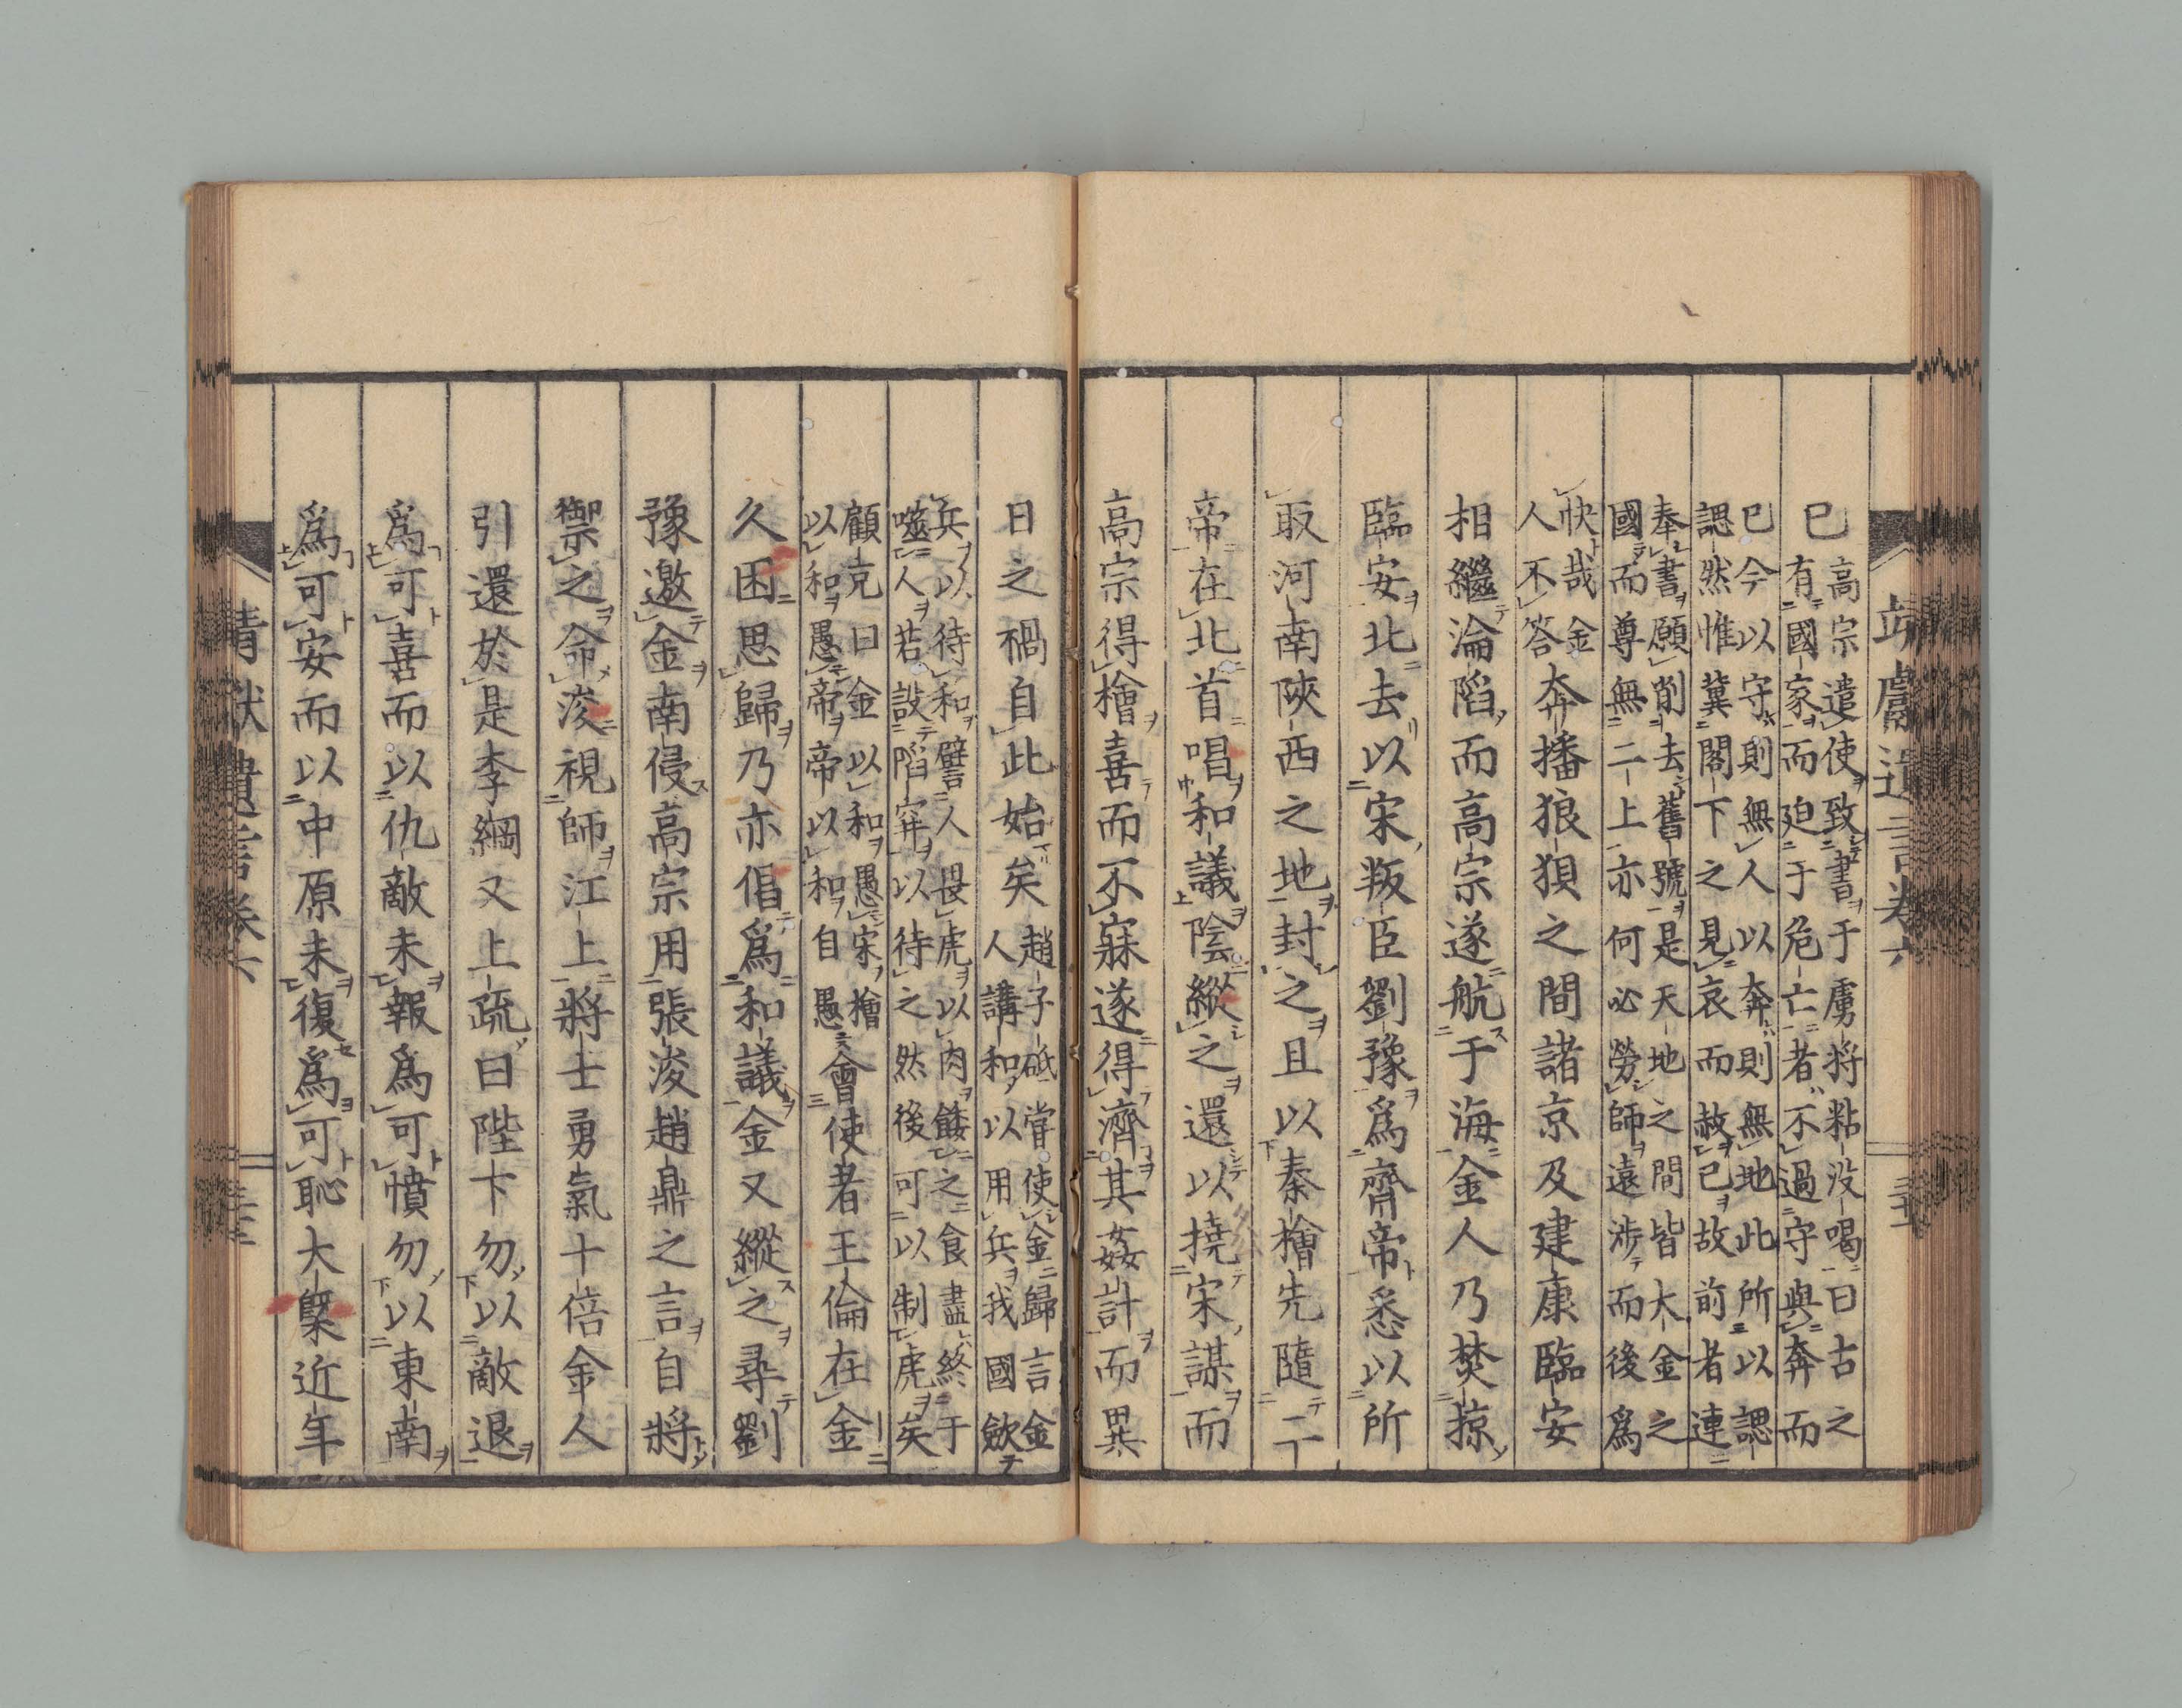 靖獻遺言卷六
已高宗遣使致書于虜將粘没喝曰古之
有國家而迫于危亡者不過守與奔而
已今以守則無人以奔則無地此所以諰
諰然惟冀閣下之見哀而赦已故前者連
奉書願削去舊號是天地之間皆大金之
國而尊無二上亦何必勞師遠涉而後爲
快哉金
人不答奔播狼狽之間諸京及建康臨安
相繼淪陷而高宗遂航于海金人乃焚掠
臨安北去以宋叛臣劉豫爲齊帝悉以所
取河南陜西之地封之且以秦檜先隨二
帝在北首唱和議陰縱之還以撓宋謀而
高宗得檜喜而不寐遂得濟其姦計而異
日之禍自此始矣趙子砥嘗使金歸言金
人講和以用兵我國歛
兵以待和譬人畏虎以肉餧之食盡終于
噬人若設陷穽以待之然後可以制虎矣
顧克曰金以和愚宋檜
以和愚帝帝以和自愚會使者王倫在金
久困思歸乃亦倡爲和議金又縱之尋劉
豫邀金南侵高宗用張浚趙鼎之言自將
禦之命浚視師江上將士勇氣十倍金人
引還於是李綱又上疏曰陛下勿以敵退
爲可喜而以仇敵未報爲可憤勿以東南
爲可安而以中原未復爲可恥大槩近年
靖獻遺言卷六